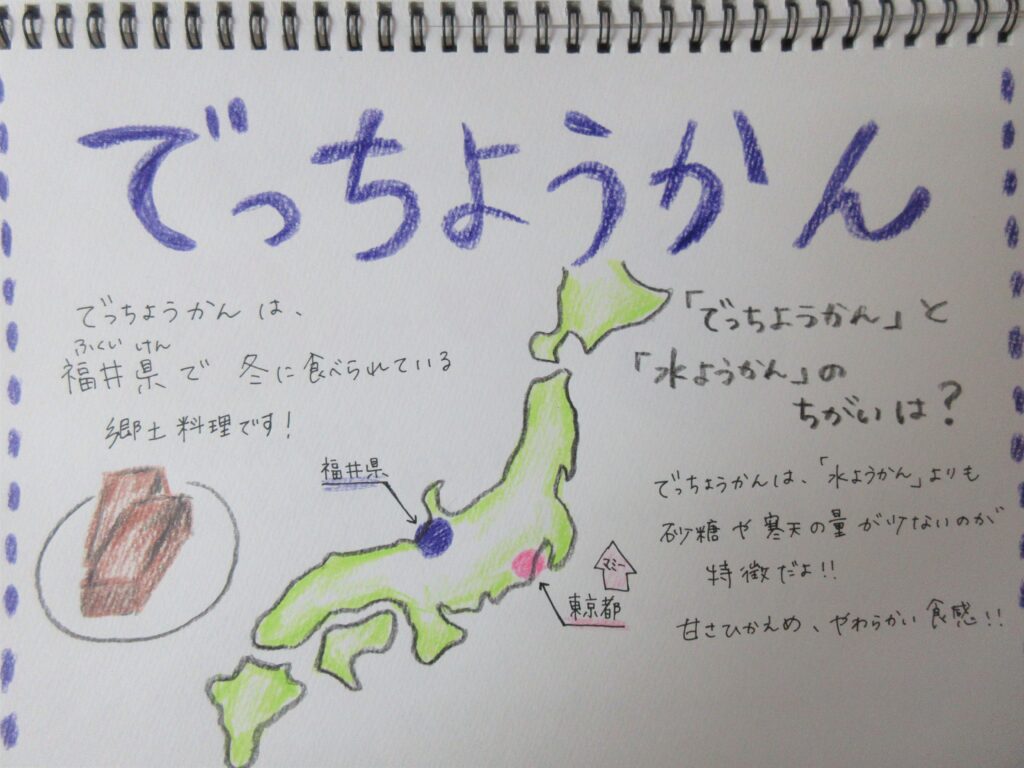 でっちようかん
でっちようかんは、
ふくい けん
福井県で 冬に食べられている
郷土料理です!
福井県
東京都
マミー
「でっちようかん」と
「水ようかん」の
ちがいは?
でっちようかんは、「水ようかん」よりも
砂糖や寒天の量が少ないのが
特徴だよ!!
甘さひかえめ、やわらかい食感!!